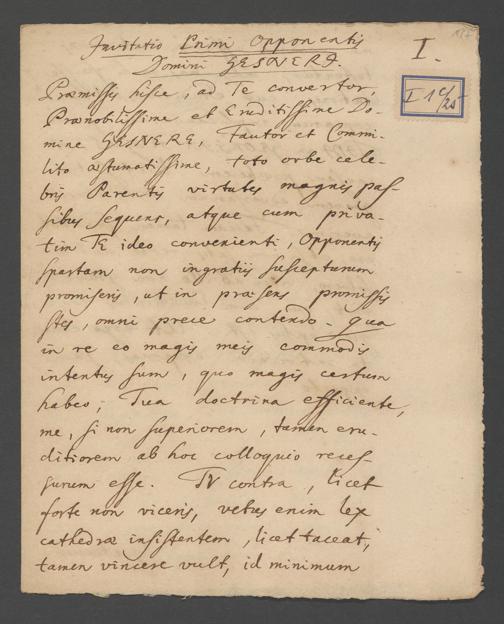 Invitatio Primi Opponentis
Domini GESNERI.
I.
I 1 c/25
Præmissis hisce, ad Te convertor,
Prænobilissime et Eruditissime Do-
mine GESNERE, Fautor et Commi-
lito æstumatissime, toto orbe cele-
bris Parentis virtutes magnis pas-
sibus sequens, atque cum priva-
tim Te ideo convenienti, Opponentis
spartam non ingratiis suscepturum
promiseris, ut in præsens promissis
stes, omni prece contendo. Qua
in re eo magis meis commodis
intentus sum, quo magis certum
habeo, Tua doctrina efficiente,
me, si non superiorem, tamen eru-
ditiorem ab hoc colloquio reces-
surum esse. TV contra, licet
forte non viceris, vetus enim lex
cathedræ insistentem, licet taceat,
tamen vincere vult, id minimum